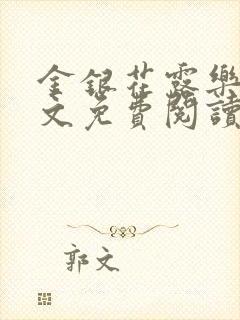 金銀花露樂
文免費閱讀
郭文